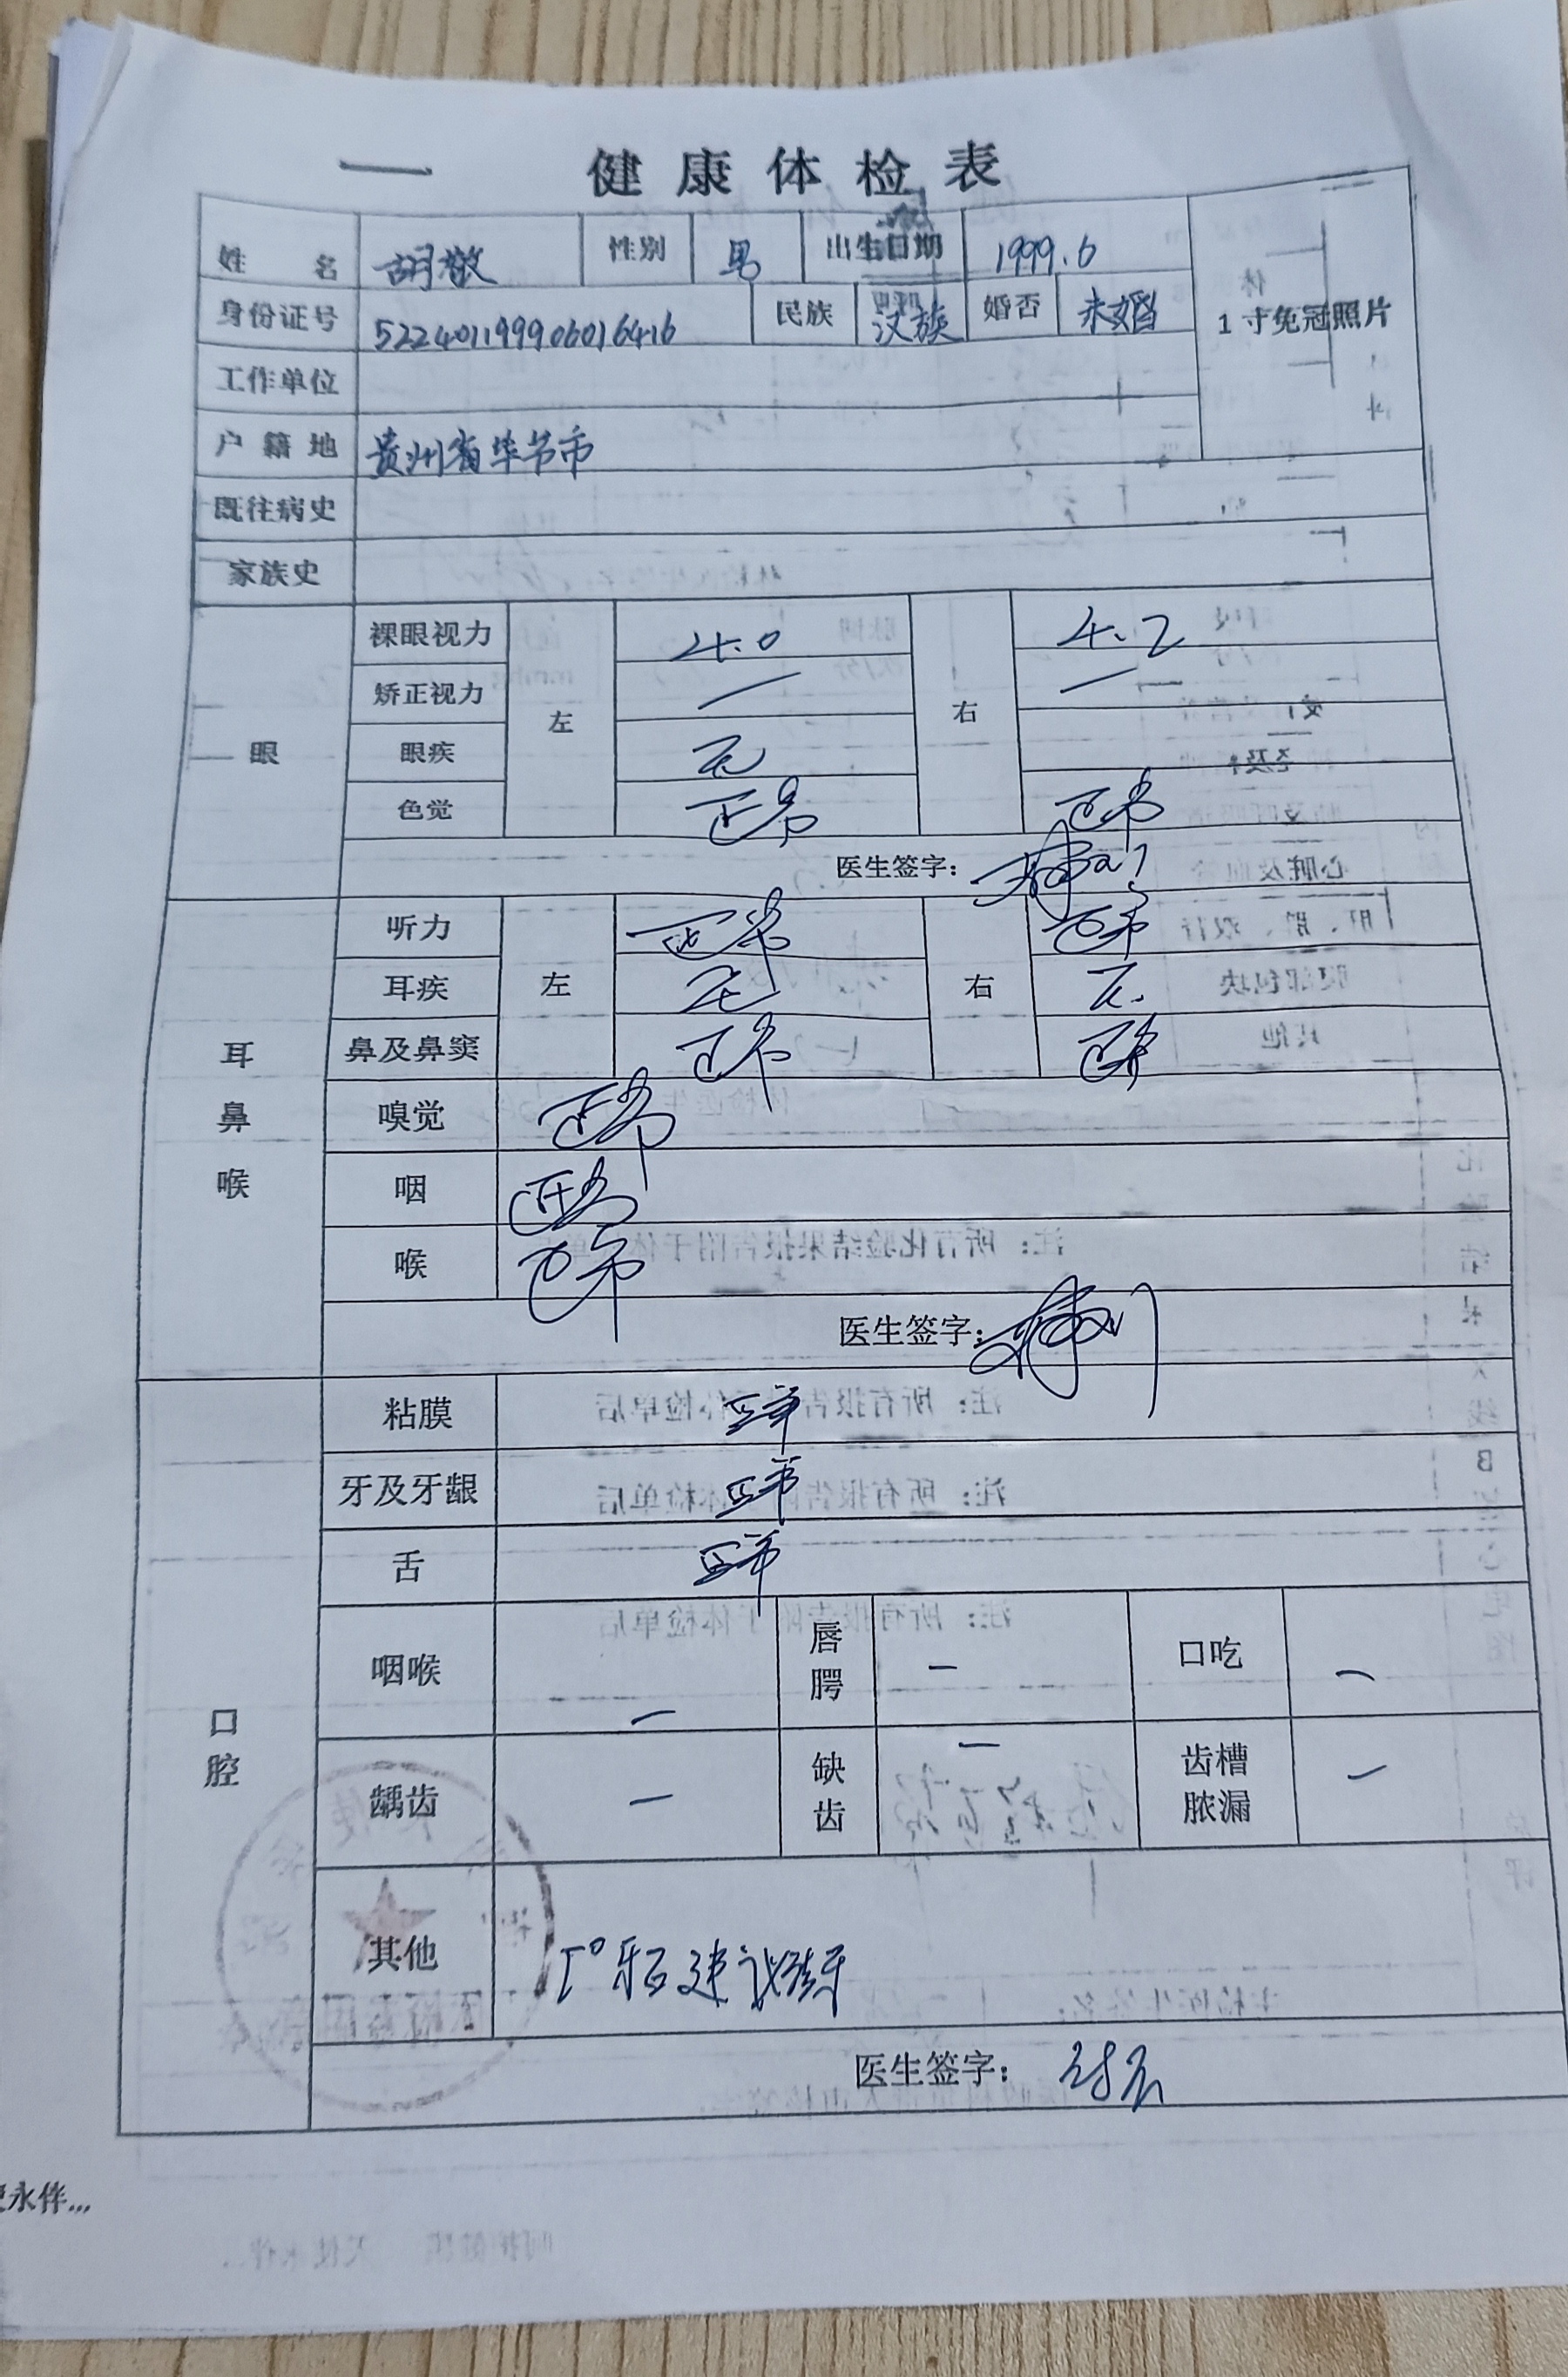 健康体检表
姓名 胡敬 性别 男 出生日期 1999.6
身份证号 522401199906016416 民族 汉族 婚否 未婚 1寸免冠照片
工作单位
户籍地 贵州省毕节市
既往病史
家族史
眼
裸眼视力 左 4.0 右 4.2
矫正视力 / /
眼疾 无
色觉 正常 正常
医生签字:
耳鼻喉
听力 左 正常 右 正常
耳疾 无 无
鼻及鼻窦 正常 正常
嗅觉 正常
咽 正常
喉 正常
医生签字:
口腔
粘膜 正常
牙及牙龈 正常
舌 正常
咽喉 — 唇腭 — 口吃 —
龋齿 — 缺齿 — 齿槽脓漏 —
其他 I°牙石建议洁牙
医生签字:
永伴...